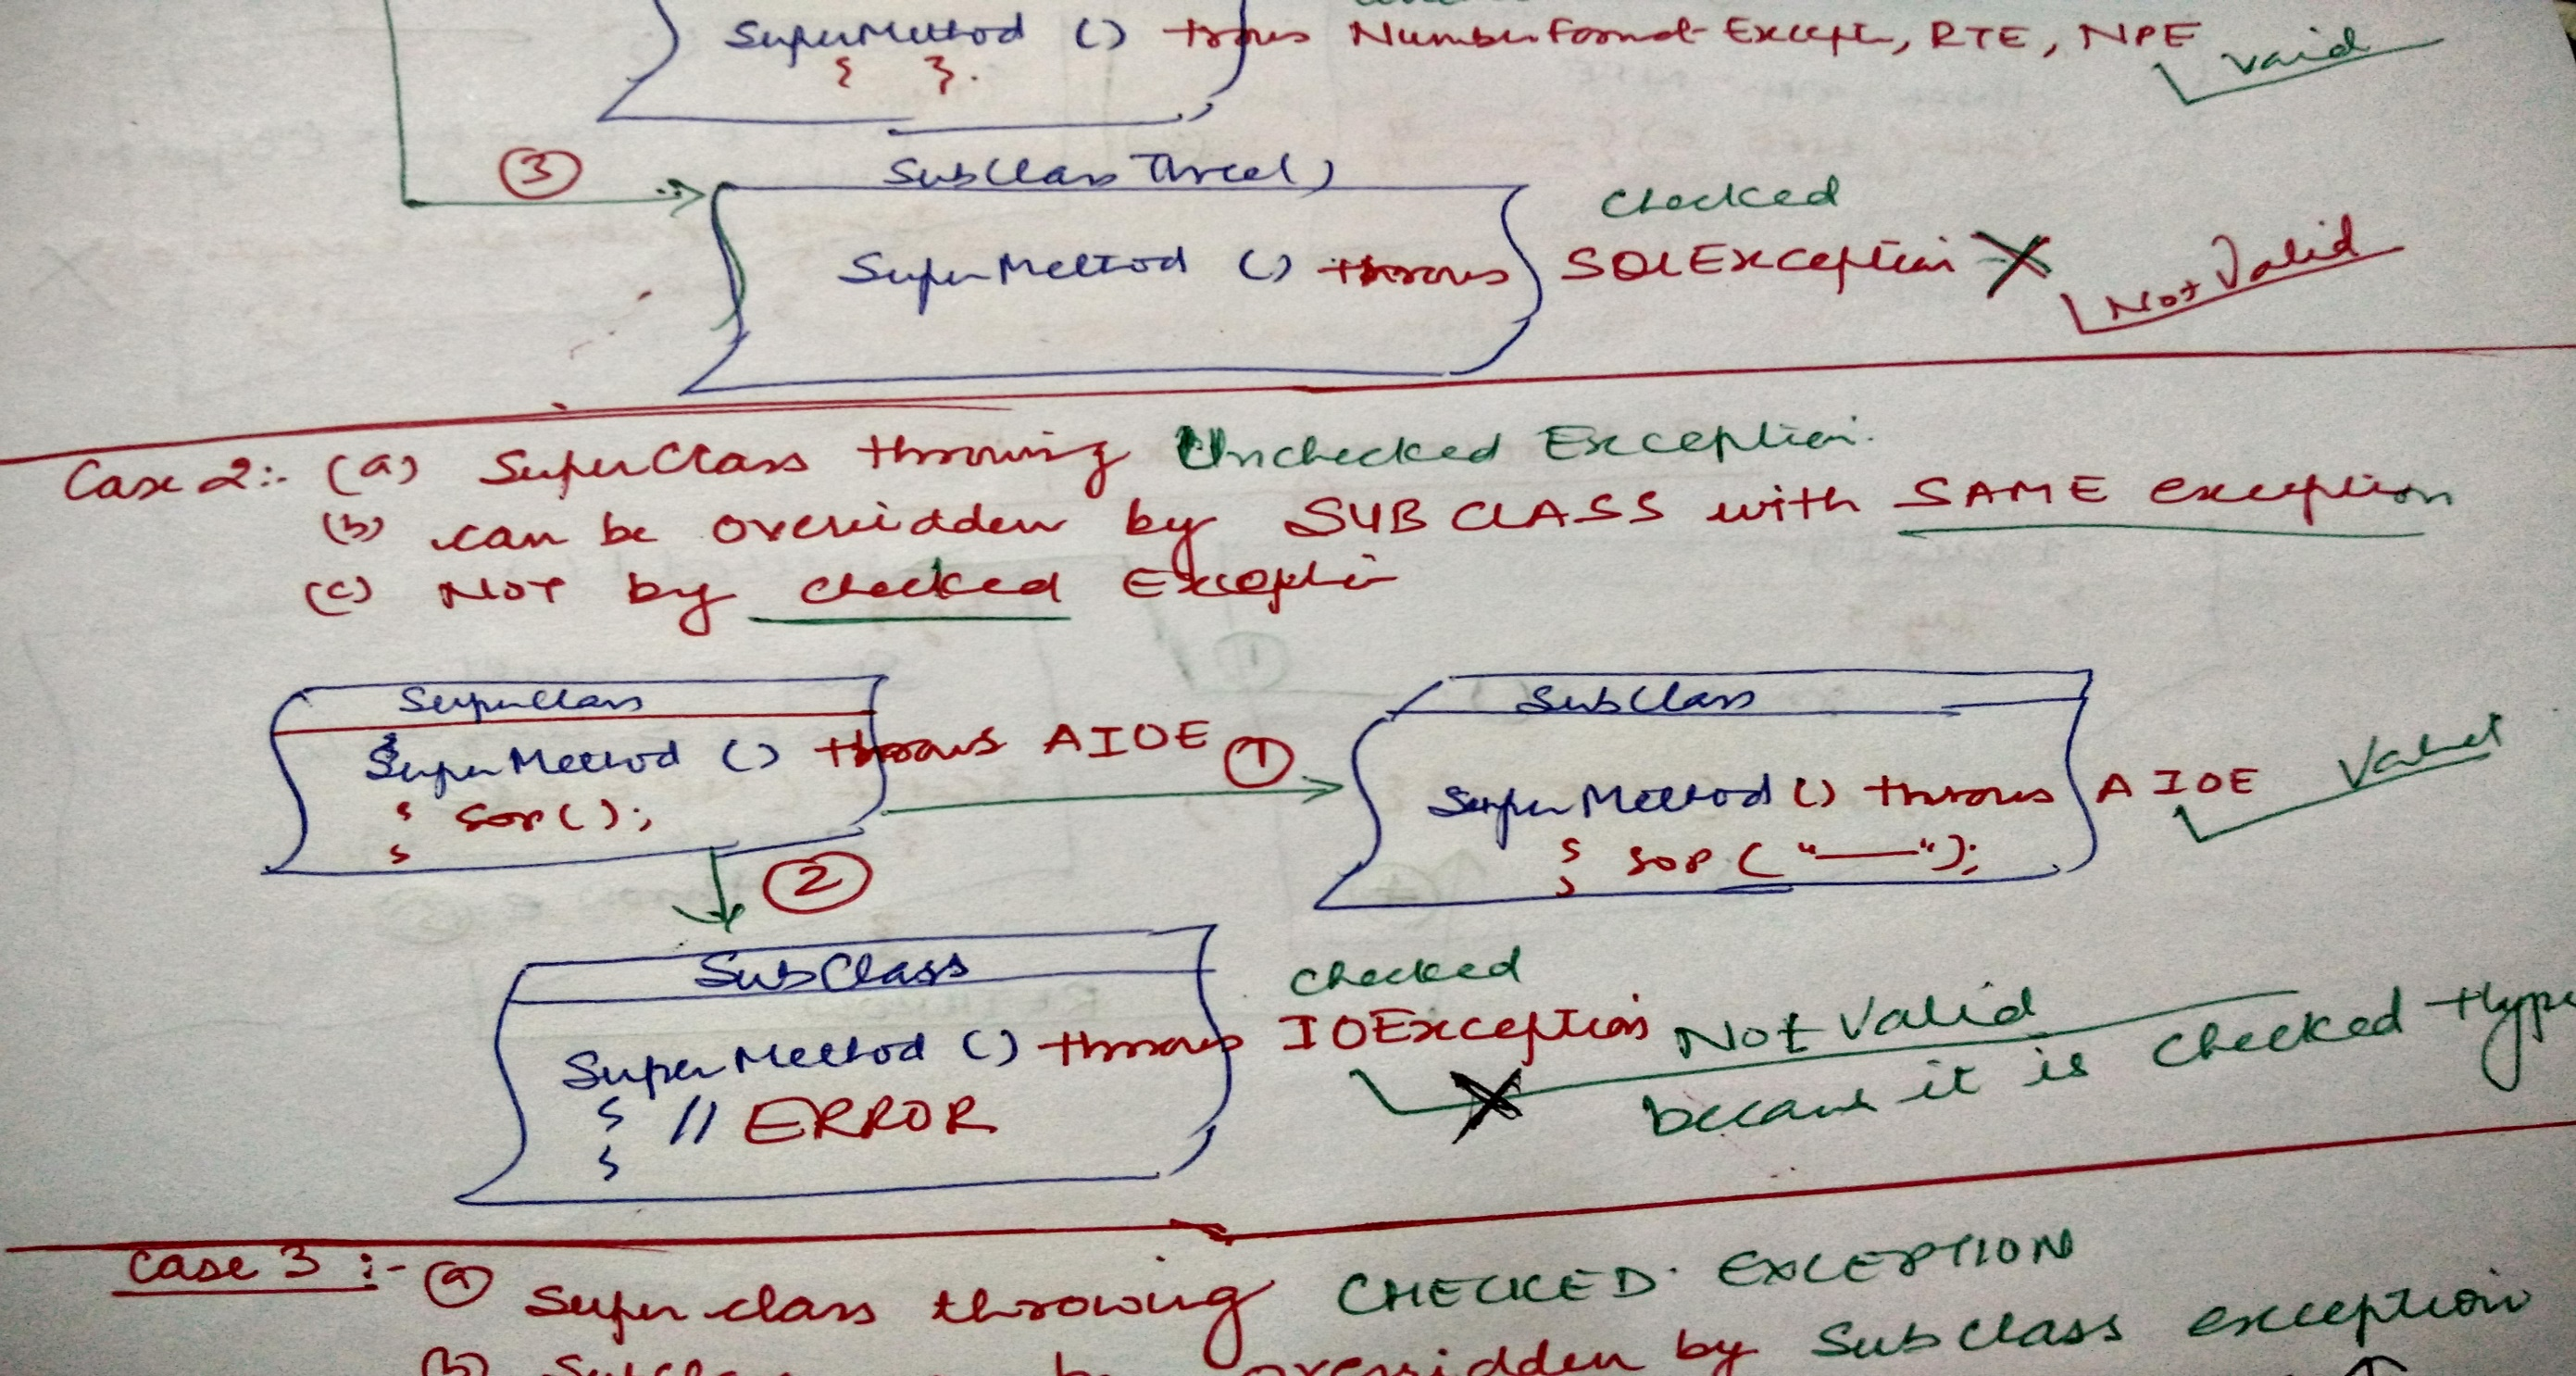 SuperMethod () throws NumberFormat Except, RTE, NPE
{ }.
Valid
③
SubClassThree()
Checked
SuperMethod () throws SQLException X
Not Valid
Case 2:- (a) SuperClass throwing Unchecked Exception.
(b) can be overridden by SUB CLASS with SAME exception
(c) NOT by checked Exception
SuperClass
SuperMethod () throws AIOE
{ SOP();
}
①
SubClass
SuperMethod () throws AIOE
{ SOP ("——");
}
Valid
②
SubClass
Checked
SuperMethod () throws IOException
{ // ERROR
}
Not Valid
because it is checked type
Case 3 :- ⓐ Super class throwing CHECKED EXCEPTION
(b) overridden by Subclass exception